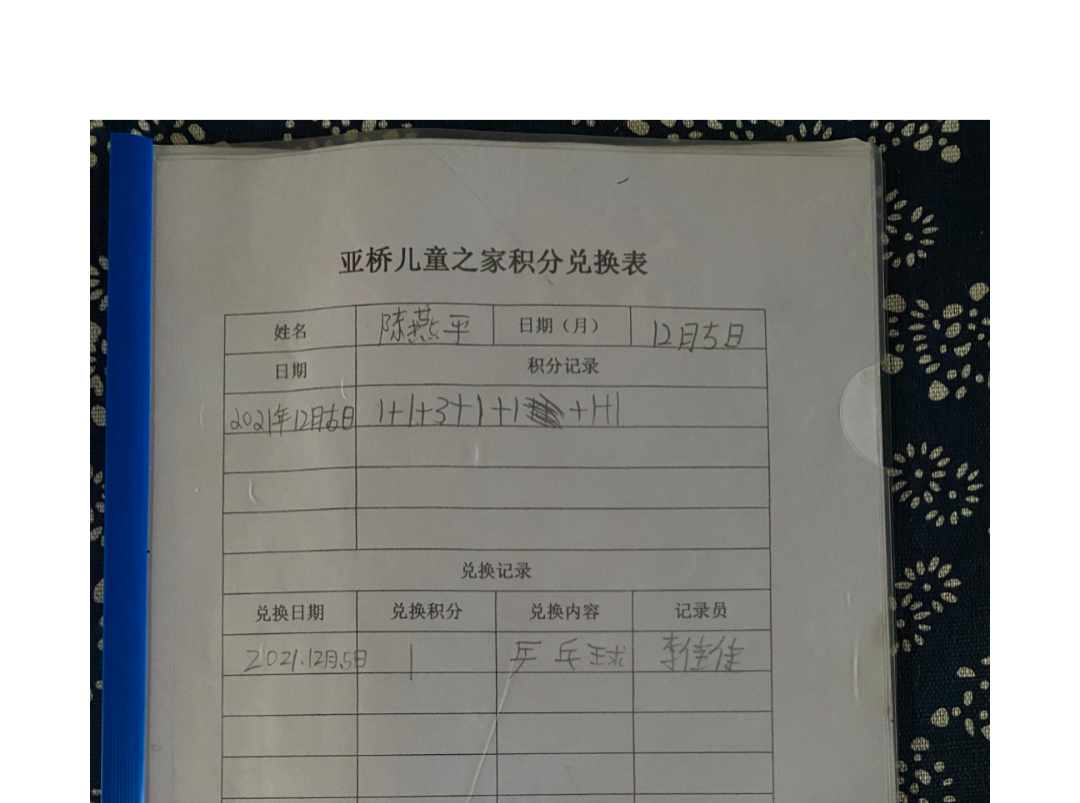 亚桥儿童之家积分兑换表
姓名 陈燕平 日期（月） 12月5日
日期 积分记录
2021年12月5日 1+1+3+1+1 +1+1
兑换记录
兑换日期 兑换积分 兑换内容 记录员
2021.12月5日 1 乒乓球 李佳佳